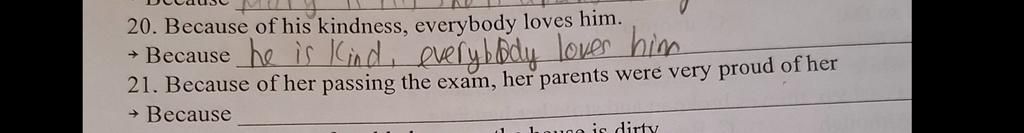 20. Because of his kindness, everybody loves him.
→ Because he is kind, everybody loves him
21. Because of her passing the exam, her parents were very proud of her
→ Because
the house is dirty